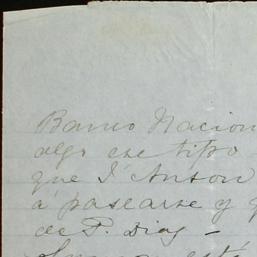 Banco Nacion
algo ese tipo
que I' Anson
á pasearse y q
de P. Diaz –